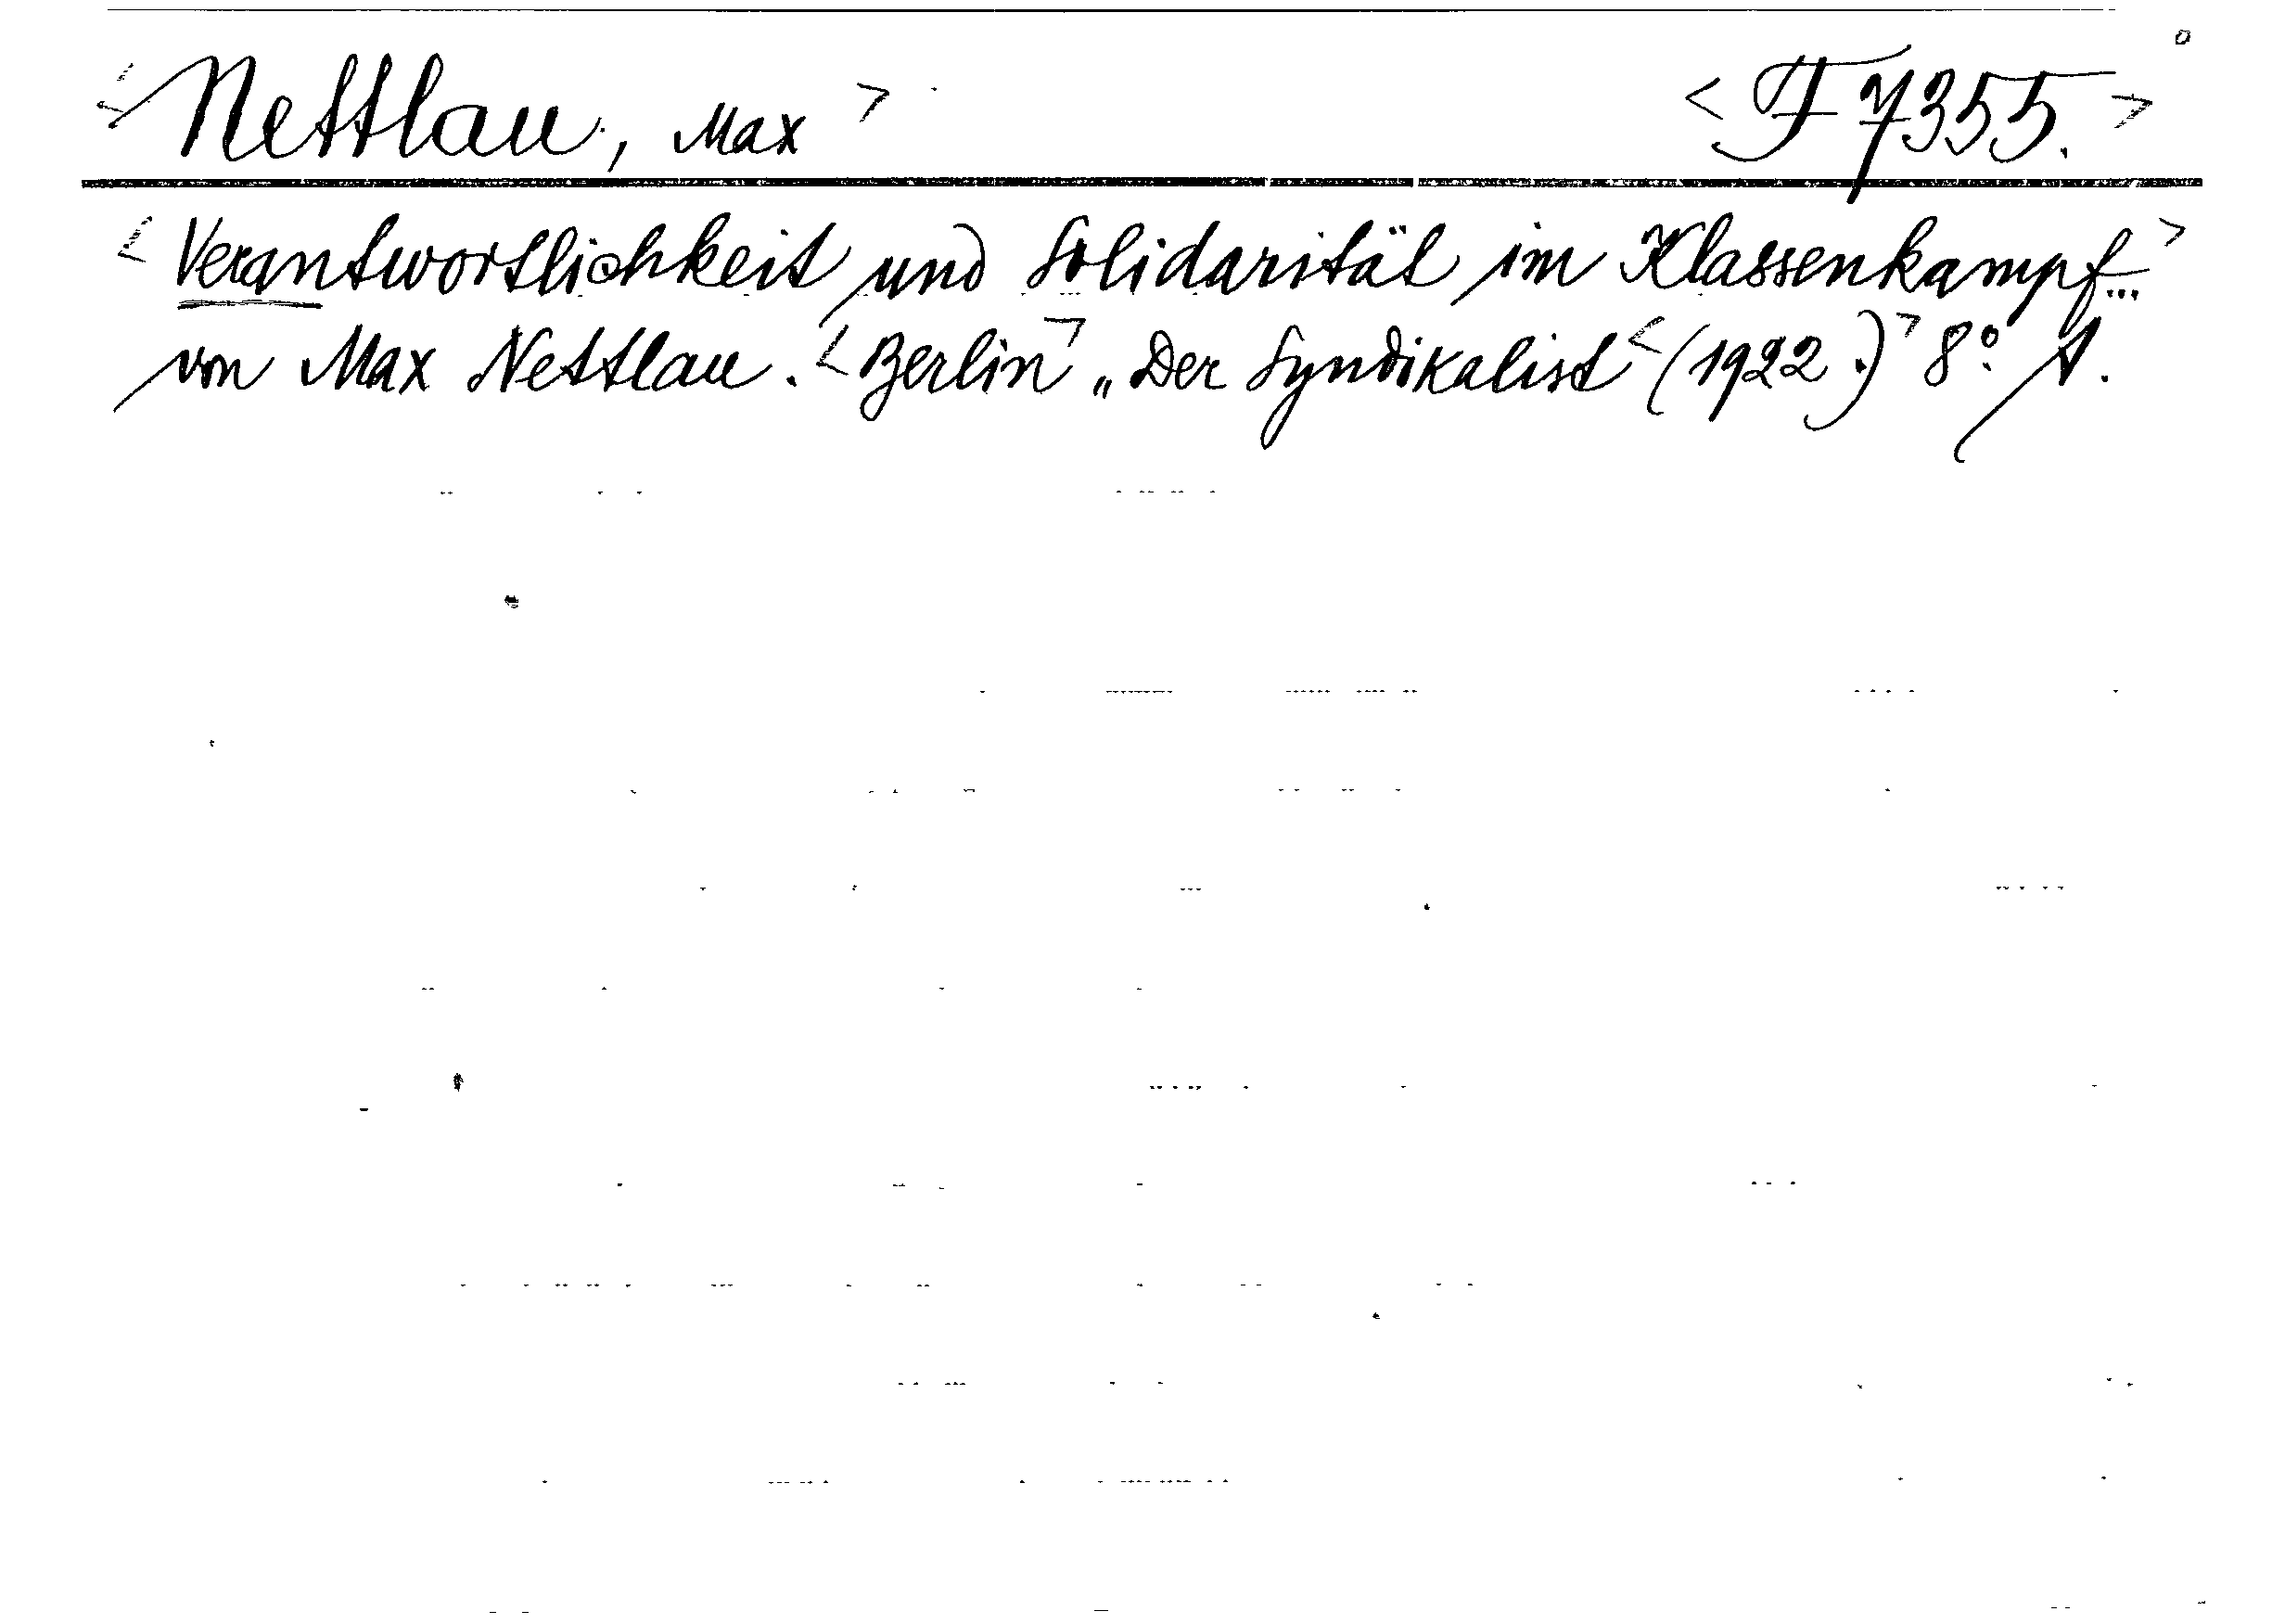 <Nettlau, Max> <F 7355.>
<Verantwortlichkeit und Solidarität im Klassenkampf...>
von Max Nettlau. <Berlin> „Der Syndikalist <(1922.)> 8° A.